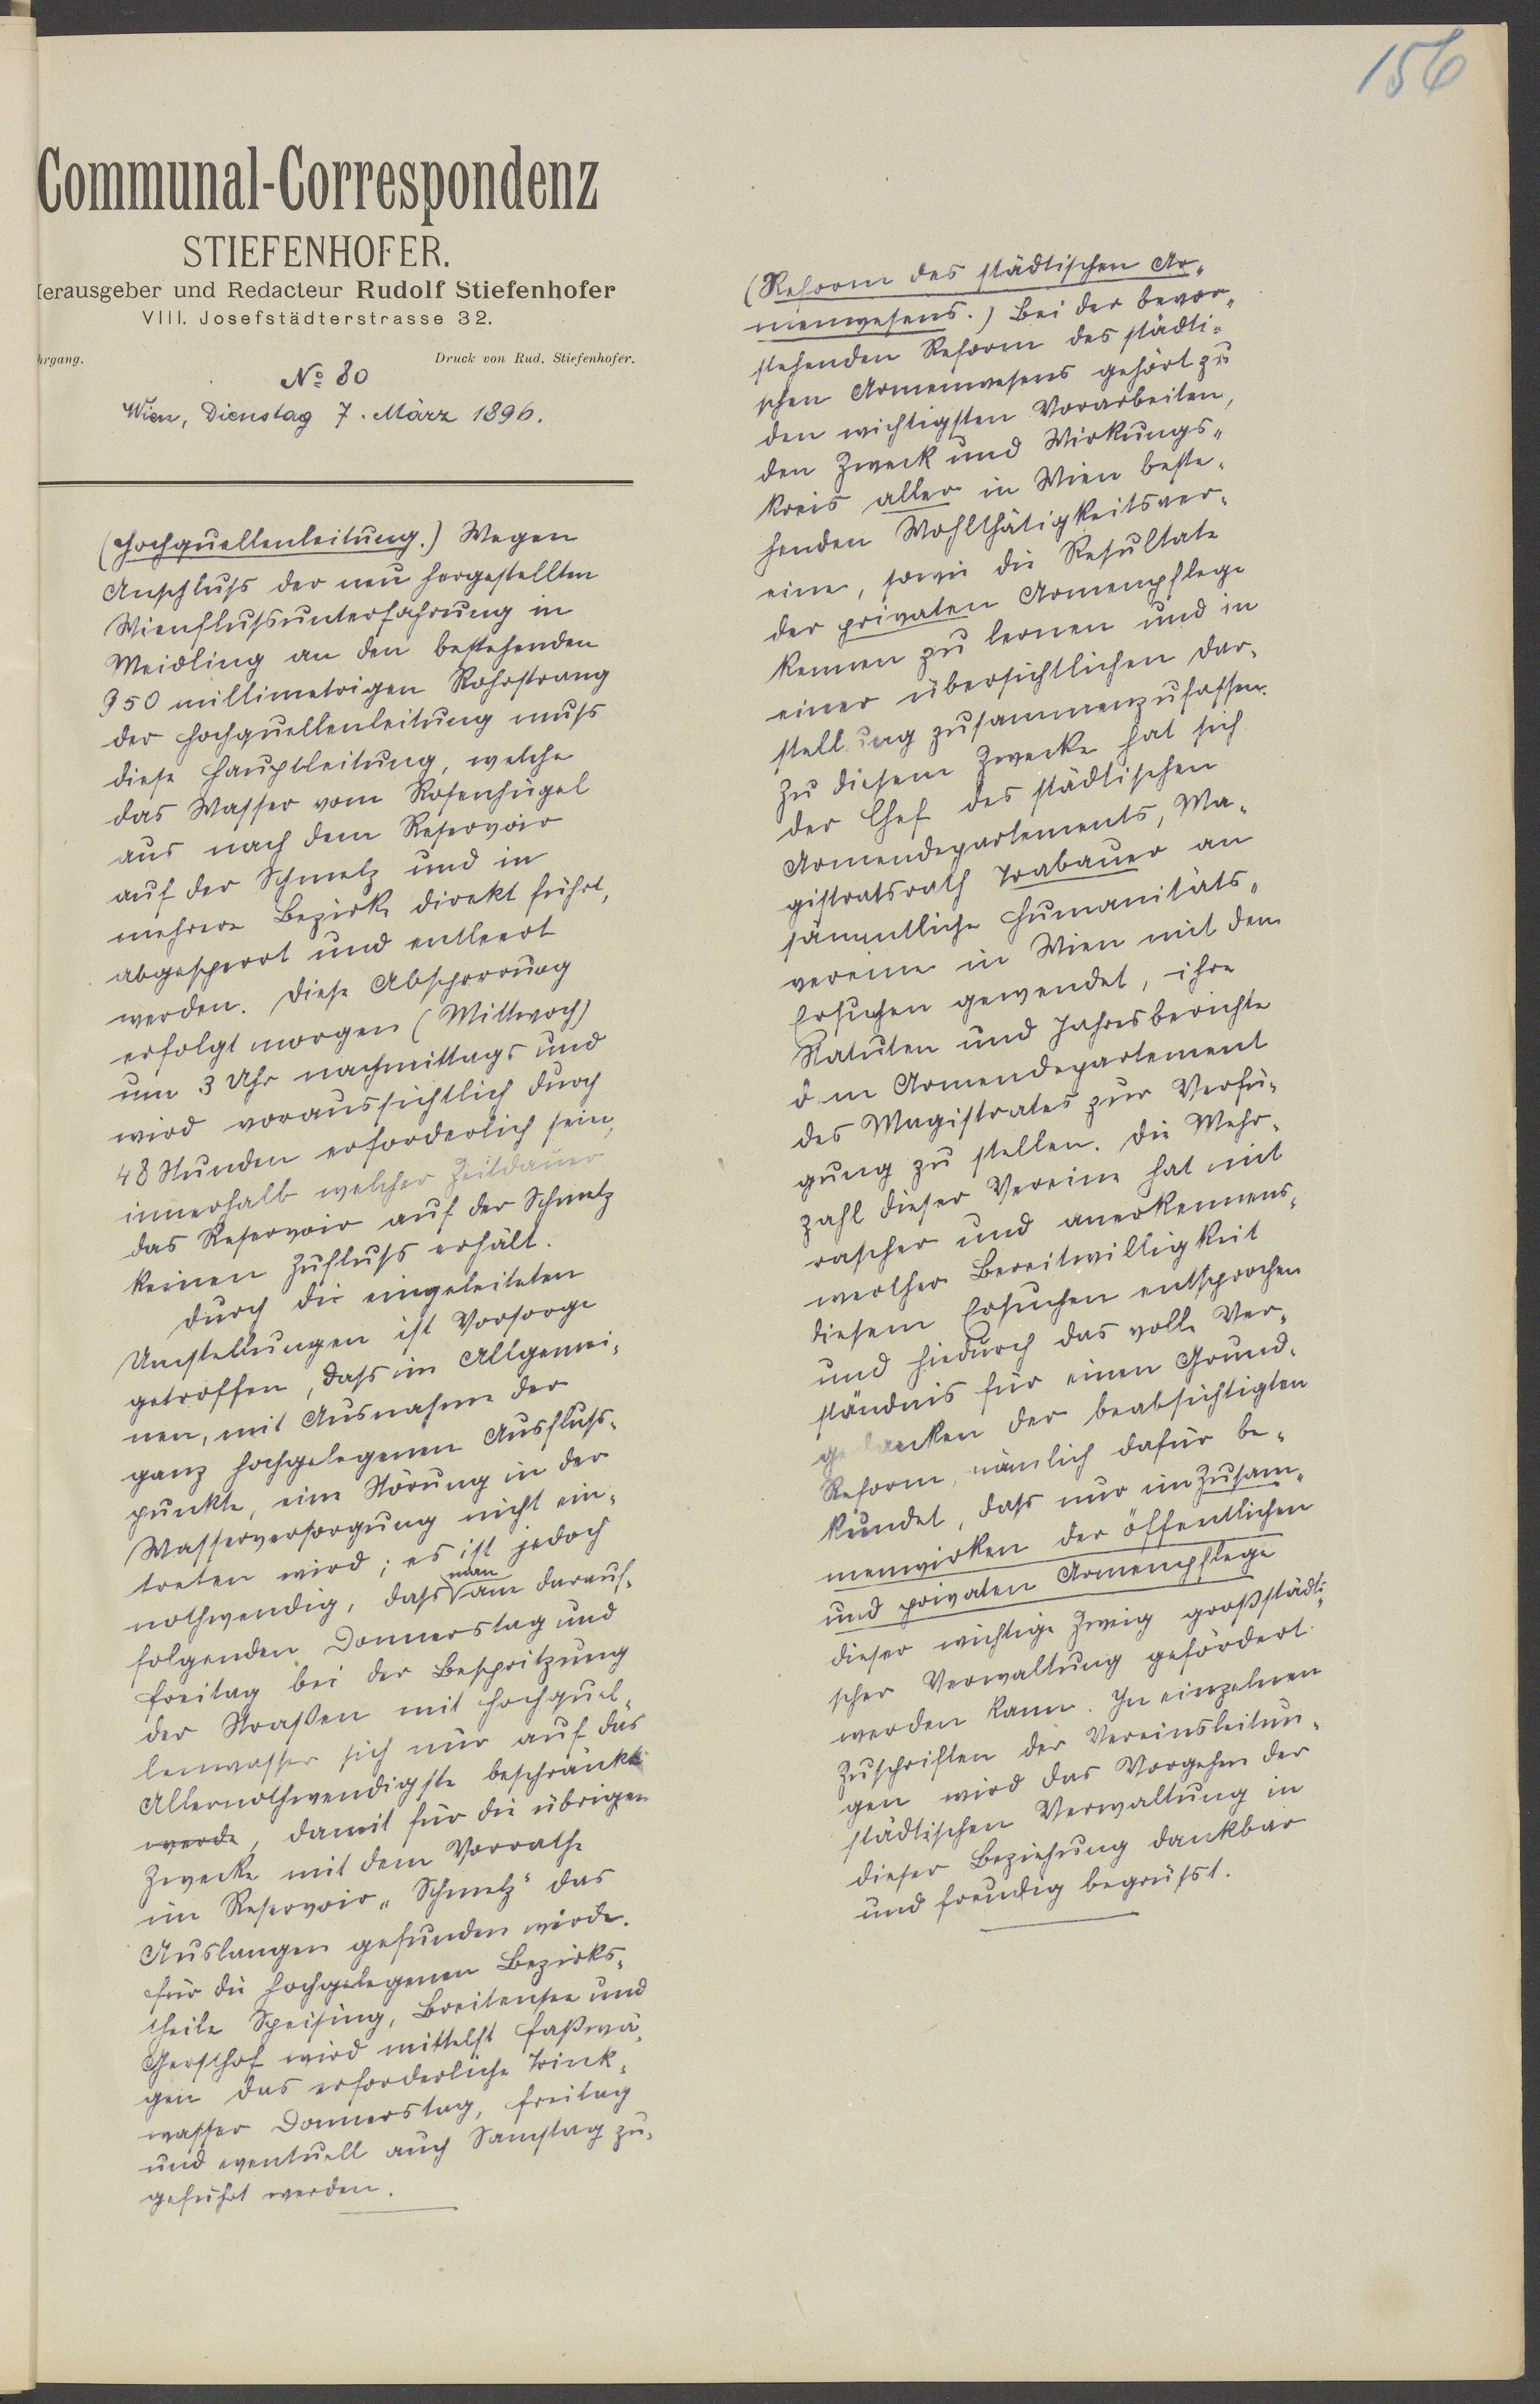 156
Communal-Correspondenz
STIEFENHOFER.
Herausgeber und Redacteur Rudolf Stiefenhofer
VIII. Josefstädterstrasse 32.
hrgang. Druck von Rud. Stiefenhofer.
No 80
Wien, Dienstag 7. März 1896.
(Hochquellenleitung.) Wegen
Anschluß der neu hergestellten
Wienflußunterfahrung in
Meidling an den bestehenden
950 millimetrigen Rohrstrang
der Hochquellenleitung muß
diese Hauptleitung, welche
das Wasser vom Rosenhügel
aus nach dem Reservoir
auf der Schmelz und in
mehrere Bezirke direkt führt,
abgesperrt und entleert
werden. Diese Absperrung
erfolgt morgen (Mittwoch)
um 3 Uhr nachmittags und
wird voraussichtlich durch
48 Stunden erforderlich sein,
innerhalb welcher Zeitdauer
das Reservoir auf der Schmelz
keinen Zufluß erhält.
Durch die eingeleiteten
Umstellungen ist Vorsorge
getroffen, daß im Allgemei-
nen, mit Ausnahme der
ganz hochgelegenen Ausfluß-
punkte, eine Störung in der
Wasserversorgung nicht ein-
treten wird; es ist jedoch
nothwendig, daß man am darauf-
folgenden Donnerstag und
Freitag bei der Bespritzung
der Straßen mit Hochquel-
lenwasser sich nur auf das
Allernothwendigste beschränkt
werde, damit für die übrigen
Zwecke mit dem Vorrathe
im Reservoir „Schmelz“ das
Auslangen gefunden würde.
Für die hochgelegenen Bezirks-
theile Speising, Breitensee und
Gersthof wird mittelst Faßwä-
gen das erforderliche Trink-
wasser Donnerstag, Freitag
und eventuell auch Samstag zu-
geführt werden.
(Reform des städtischen Ar-
menwesens.) Bei der bevor-
stehenden Reform des städti-
schen Armenwesens gehört zu
den wichtigsten Vorarbeiten,
den Zweck und Wirkungs-
kreis aller in Wien beste-
henden Wohlthätigkeitsver-
eine, sowie die Resultate
der privaten Armenpflege
kennen zu lernen und in
einer übersichtlichen Dar-
stellung zusammenzufassen.
Zu diesem Zwecke hat sich
der Chef des städtischen
Armendepartements, Ma-
gistratsrath Trabauer an
sämmtliche Humanitäts-
vereine in Wien mit dem
Ersuchen gewendet, ihre
Statuten und Jahresberichte
dem Armendepartement
des Magistrates zur Verfü-
gung zu stellen. Die Mehr-
zahl dieser Vereine hat mit
rascher und anerkennens-
werther Bereitwilligkeit
diesem Ersuchen entsprochen
und hiedurch das volle Ver-
ständnis für einen Grund-
gedanken der beabsichtigten
Reform, nämlich dafür be-
kundet, daß nur im Zusam-
menwirken der öffentlichen
und privaten Armenpflege
dieser wichtige Zweig großstädti-
scher Verwaltung gefördert
werden kann. In einzelnen
Zuschriften der Vereinsleitun-
gen wird das Vorgehen der
städtischen Verwaltung in
dieser Beziehung dankbar
und freudig begrüßt.